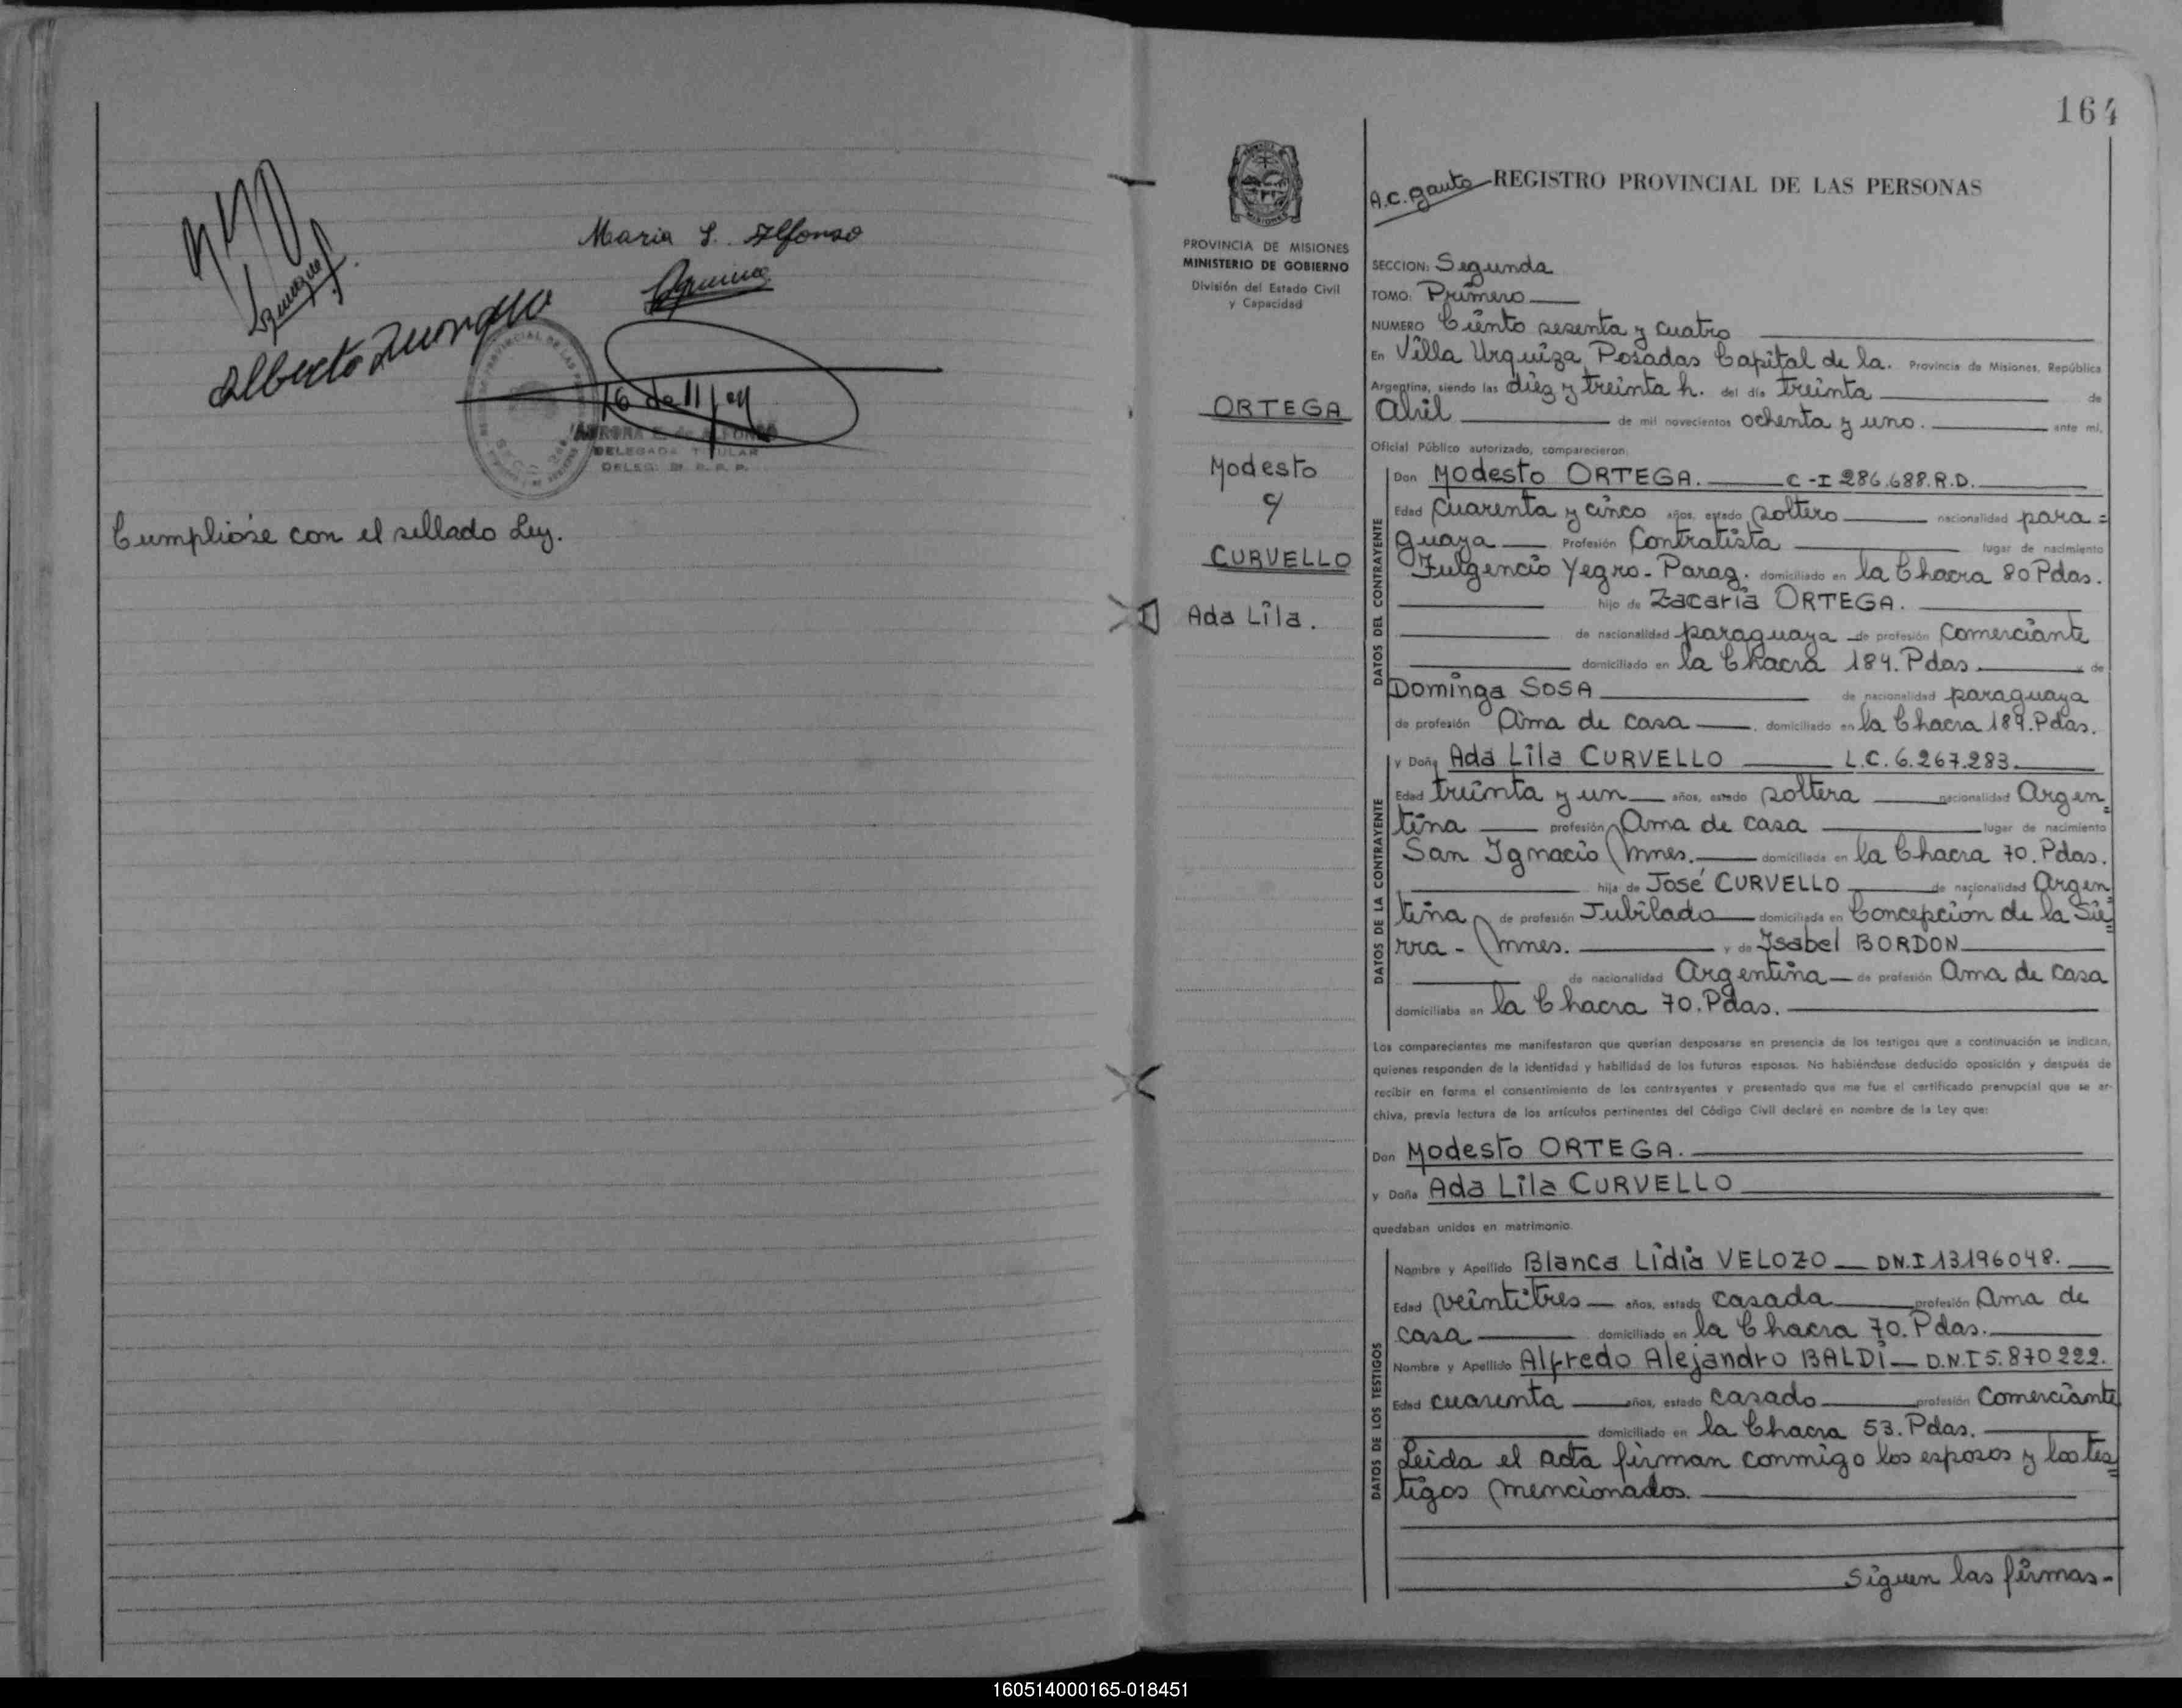 Maria S. Alfonso
Alberto
DELEGADA TITULAR
DELEG. R. P. P.
Cumplióse con el sellado Ley.
164
PROVINCIA DE MISIONES
MINISTERIO DE GOBIERNO
División del Estado Civil
y Capacidad
ORTEGA
Modesto
c/
CURVELLO
Ada Lila.
A.C. Gauto
REGISTRO PROVINCIAL DE LAS PERSONAS
SECCION: Segunda
TOMO: Primero
NUMERO Ciento sesenta y cuatro
En Villa Urquiza Posadas Capital de la. Provincia de Misiones, República
Argentina, siendo las diez y treinta h. del día treinta de
Abril de mil novecientos ochenta y uno. ante mí,
Oficial Público autorizado, comparecieron:
DATOS DEL CONTRAYENTE
Don Modesto ORTEGA. C-I 286.688.R.D.
Edad Cuarenta y cinco años, estado soltero nacionalidad para=
guaya Profesión Contratista lugar de nacimiento
Fulgencio Yegro-Parag. domiciliado en la Chacra 80 Pdas.
hijo de Zacaría ORTEGA.
de nacionalidad paraguaya de profesión Comerciante
domiciliado en la Chacra 184. Pdas. y de
Dominga SOSA de nacionalidad paraguaya
de profesión Ama de casa. domiciliado en la Chacra 184. Pdas.
DATOS DE LA CONTRAYENTE
y Doña Ada Lila CURVELLO L.C. 6.267.283.
Edad treinta y un años, estado soltera nacionalidad Argen=
tina profesión Ama de casa lugar de nacimiento
San Ignacio Mnes. domiciliada en la Chacra 70. Pdas.
hija de José CURVELLO de nacionalidad Argen=
tina de profesión Jubilado domiciliada en Concepción de la Sie=
rra - Mnes. y de Isabel BORDON
de nacionalidad Argentina de profesión Ama de casa
domiciliaba en la Chacra 70. Pdas.
Los comparecientes me manifestaron que querían desposarse en presencia de los testigos que a continuación se indican,
quienes responden de la identidad y habilidad de los futuros esposos. No habiéndose deducido oposición y después de
recibir en forma el consentimiento de los contrayentes y presentado que me fue el certificado prenupcial que se ar-
chiva, previa lectura de los artículos pertinentes del Código Civil declaré en nombre de la Ley que:
Don Modesto ORTEGA.
y Doña Ada Lila CURVELLO
quedaban unidos en matrimonio.
DATOS DE LOS TESTIGOS
Nombre y Apellido Blanca Lidia VELOZO DN.I 13196048.
Edad veintitres años, estado casada profesión Ama de
casa domiciliado en la Chacra 70. Pdas.
Nombre y Apellido Alfredo Alejandro BALDI D.N.I 5.870222.
Edad cuarenta años, estado casado profesión Comerciante
domiciliado en la Chacra 53. Pdas.
Leida el acta firman conmigo los esposos y los tes=
tigos mencionados.
Siguen las firmas-
160514000165-018451